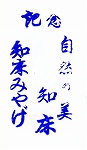 記念
自然の美
知床
知床みやげ